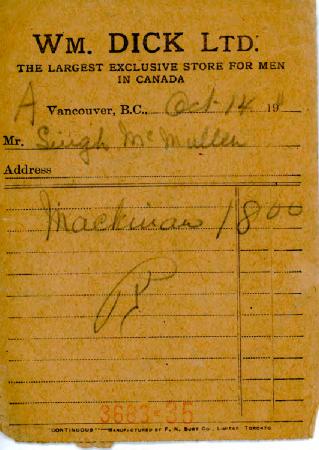 WM. DICK LTD.
THE LARGEST EXCLUSIVE STORE FOR MEN
IN CANADA
A Vancouver, B.C., Oct 14 191
Mr. Singh McMullen
Address
Mackinaw 18 00
P
3683-35
"CONTINUOUS" MANUFACTURED BY F. N. BURT CO., LIMITED TORONTO